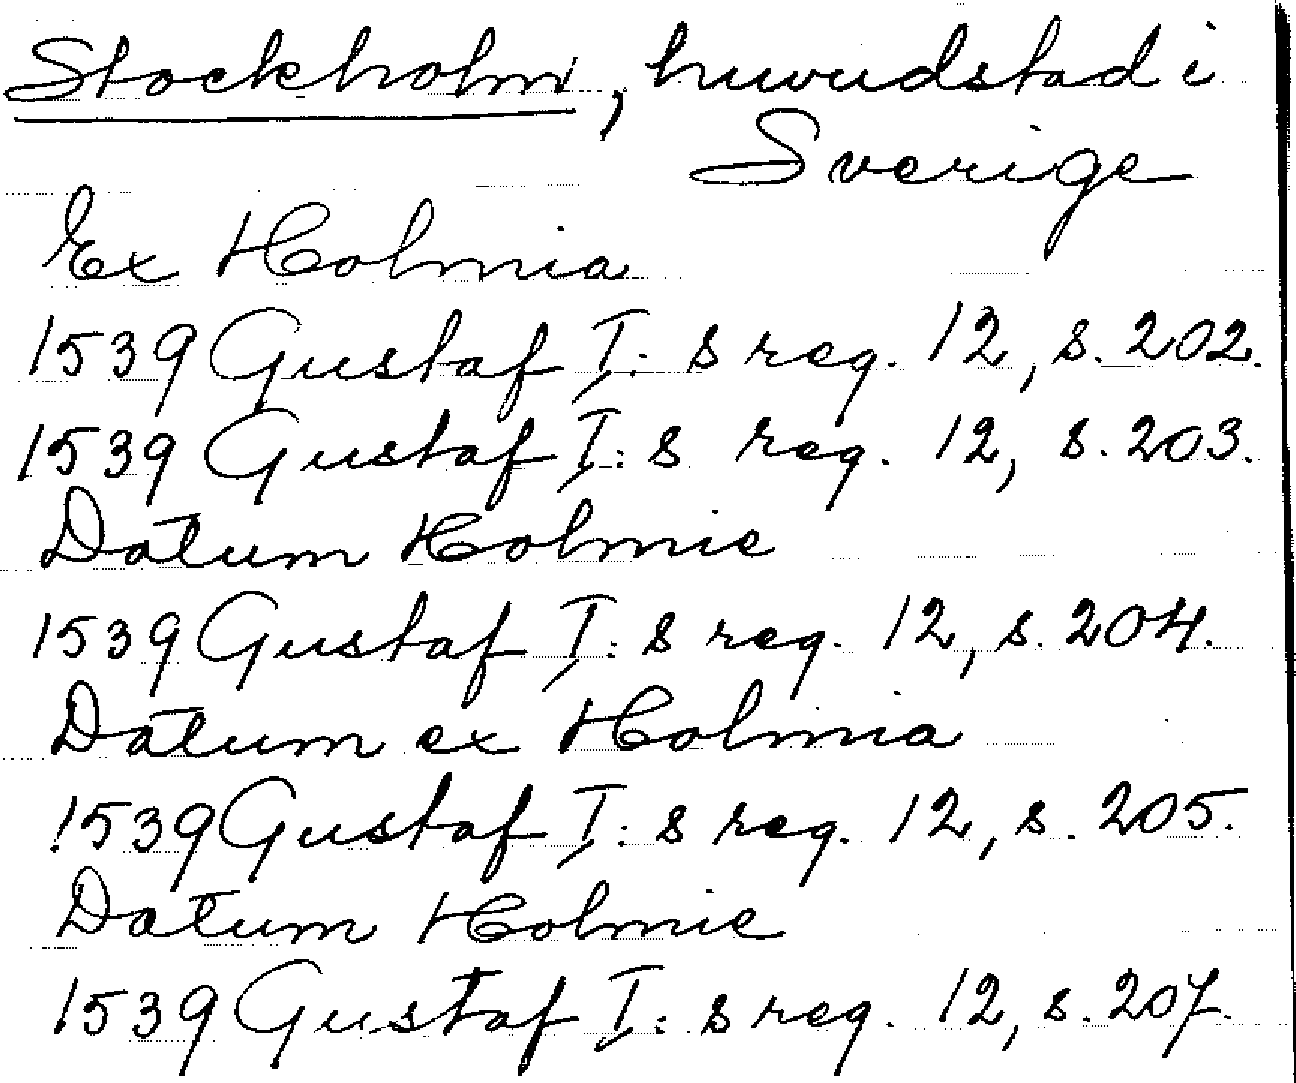 Stockholm, huvudstad i
Sverige
Ex Holmia
1539 Gustaf I:s reg. 12, s. 202.
1539 Gustaf I:s reg. 12, s. 203.
Datum Holmie
1539 Gustaf I:s reg. 12, s. 204.
Datum ex Holmia
1539 Gustaf I:s reg. 12, s. 205.
Datum Holmie
1539 Gustaf I:s reg. 12, s. 207.